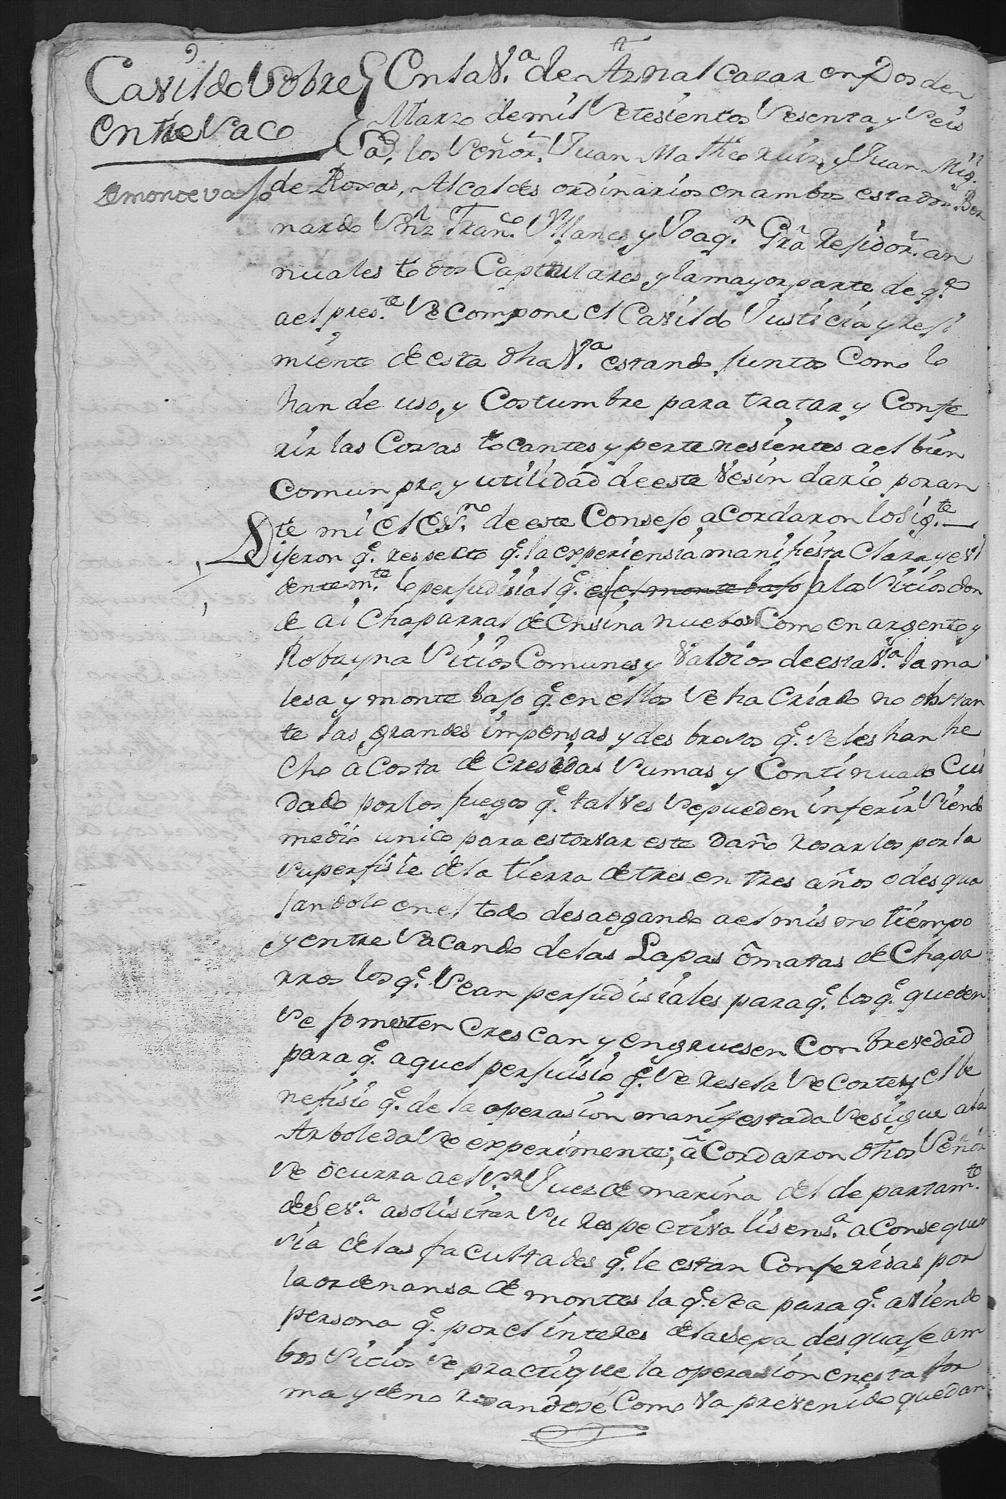 Cavildo Sobre
entre Saco
de monte vaxo
En la V.ª de Aznalcazar en Dos de
Marzo de mil Setesientos Sesenta y Seis
a.s los Señor.s Juan Matheo ruiz y Juan Mig.l
de Roxas, Alcaldes ordinarios en ambos estados Ber
nardo Frañ.co Yllanes y Joaq.n Grã Rejidor.s an
nuales todos Capitulares, y la mayor parte de q.e
ael pres.te Se compone el Cavildo Justicia y reji
miento de esta dha V.ª estando juntos Como lo
han de uso, y Costumbre para tratar y Confe
rir las Cosas tocantes y pertenesientes ael bien
Comun pro, y utilidad de este Vesindario por an
te mi el es.no de este Consejo acordaron lo sig.te
Dijeron q.e respecto q.e la experiensia manifiesta Clara y evi
dentem.te lo perjudisial q.e es el monte bajo a los Sitios don
de ai Chaparral de Ensina nuebos Como en argento y
Robayna Sitios Comunes y Valdios de esta V.ª la ma
lesa y monte bajo q.e en ellos Se ha Criado no obstan
te las grandes impensas y desbrosos q.e Se les han he
cho a Costa de Cresidas Sumas y Continuado Cui
dado por los fuegos q.e tal ves Se pueden inferir Siendo
medio unico para estorvar este Daño rosarlos por la
Superfisie de la tierra de tres en tres años o desqua
jandolo en el todo desaogando ael mismo tiempo
y entre Sacando de las Lapas õ matas de Chapa
rros los q.e Sean perjudisiales para q.e los q.e queden
Se fomenten Crescan y engruesen Con brevedad
para q.e aquel perjuisio q.e Se resela Se Corte, y el be
nefisio q.e de la operasion manifestada Se sigue a la
Arboleda Se experimente; aCordaron dhos Señor.s
Se ocurra ael S.r Juez de marina del departam.to
de Sev.ª a solisitar Su respectiva lisens.ª a Consequen
sia de las facultades q.e le estan Conferidas por
la ordenansa de montes la q.e Sea para q.e aviendo
persona q.e por el interes de la sepa desquaje am
bos Sitios Se practique la operasion en esta for
ma y de no rosandose Como va prevenido quedan